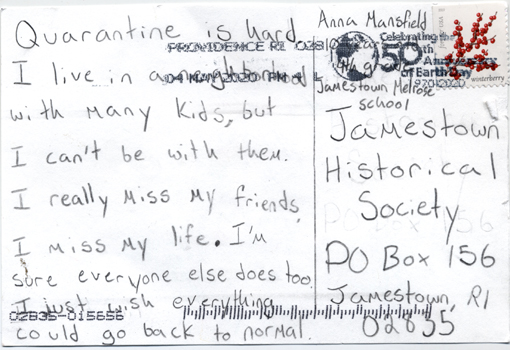 Quarantine is hard.
I live in a neighborhood
with many kids, but
I can't be with them.
I really miss my friends.
I miss my life. I'm
sure everyone else does too.
I just wish everything
could go back to normal.
PROVIDENCE RI 028
04 MAY 2020 PM 4 L
02835-015656
Anna Mansfield
4th grade
Jamestown Melrose
school
Celebrating the
50th
Anniversary
of Earth Day
1970-2020
winterberry
Jamestown
Historical
Society
PO Box 156
Jamestown, RI
02835
PO Box 156